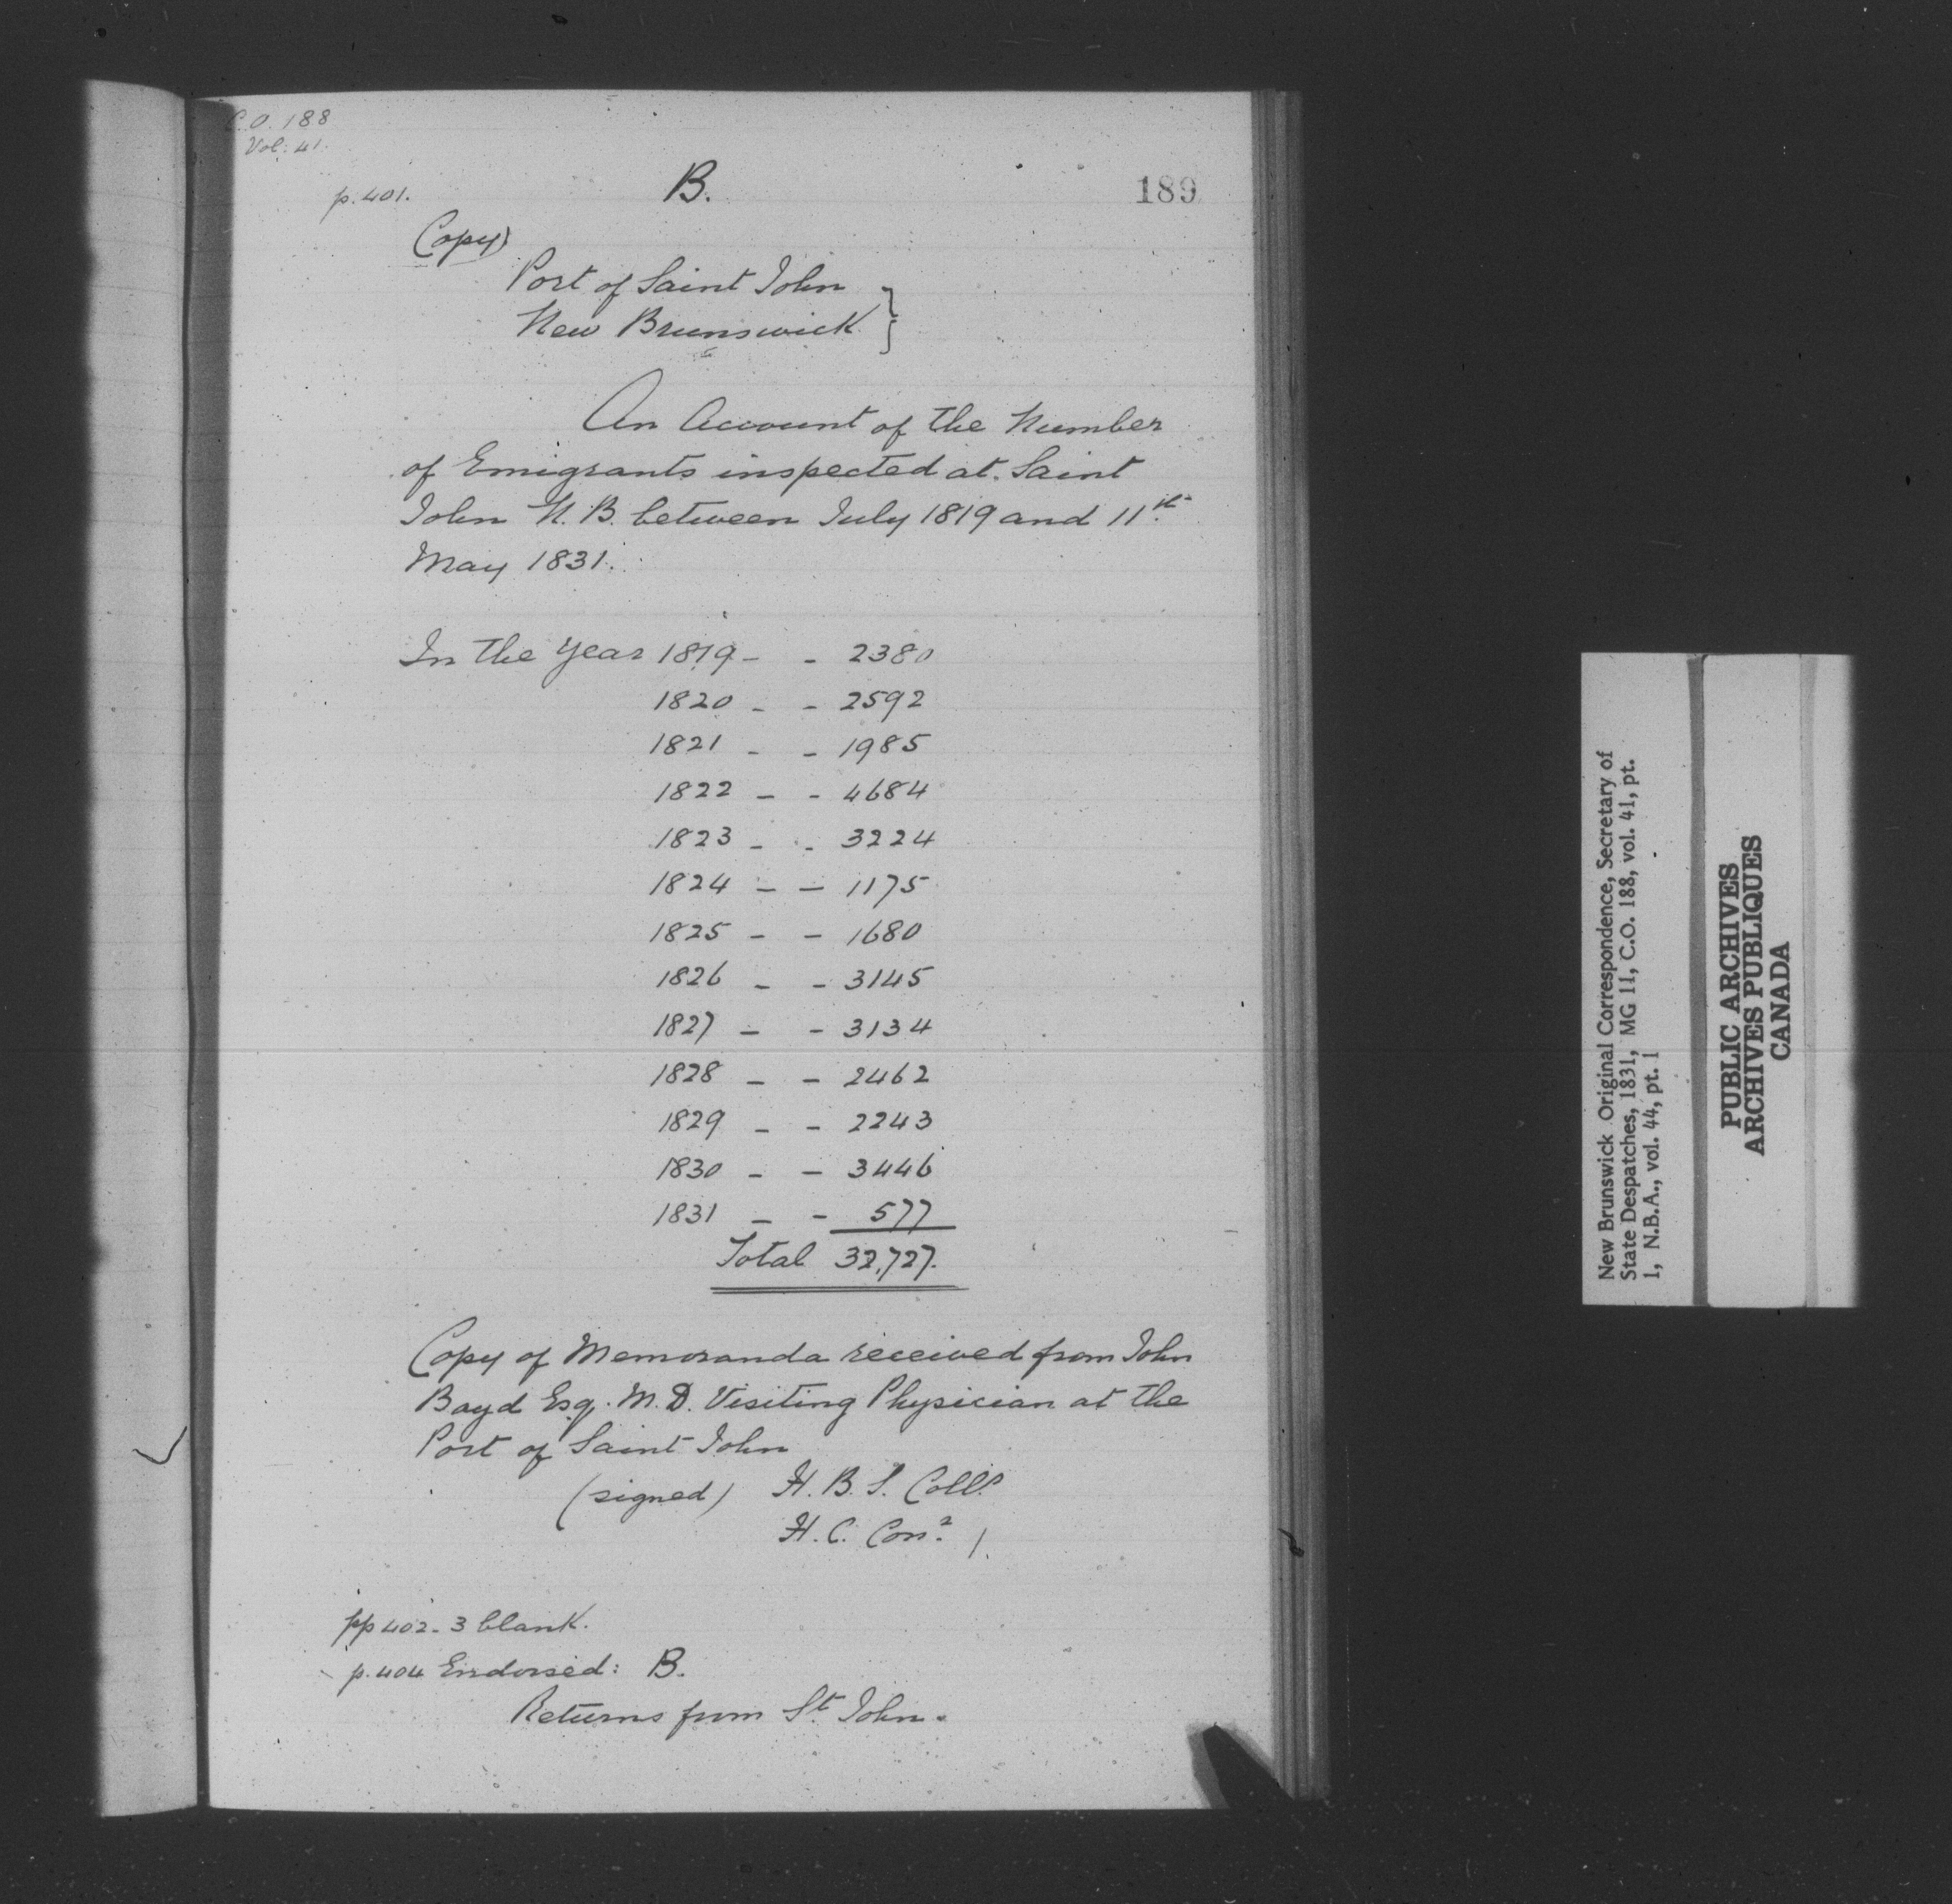 C.O. 188
Vol: 41.
p. 401.
B.
189
(Copy)
Port of Saint John }
New Brunswick }
An Account of the Number
of Emigrants inspected at Saint
John N. B. between July 1819 and 11th
May 1831.
In the Year 1819 - - 2380
1820 - - 2592
1821 - - 1985
1822 - - 4684
1823 - - 3224
1824 - - 1175
1825 - - 1680
1826 - - 3145
1827 - - 3134
1828 - - 2462
1829 - - 2243
1830 - - 3446
1831 - - 577
Total 32,727.
Copy of Memoranda received from John
Boyd Esq. M.D. Visiting Physician at the
Port of Saint John
(signed) H. B. S. Collr
H. C. Conr
pp 402-3 blank.
p. 404 Endorsed: B.
Returns from St John.
New Brunswick Original Correspondence, Secretary of
State Despatches, 1831, MG 11, C.O. 188, vol. 41, pt.
1, N.B.A., vol. 44, pt. 1
PUBLIC ARCHIVES
ARCHIVES PUBLIQUES
CANADA